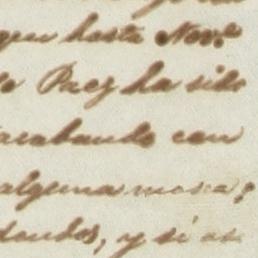 hasta Nov.e
Paez ha sido
acabando con
alguna mosca,
deudos, y si es